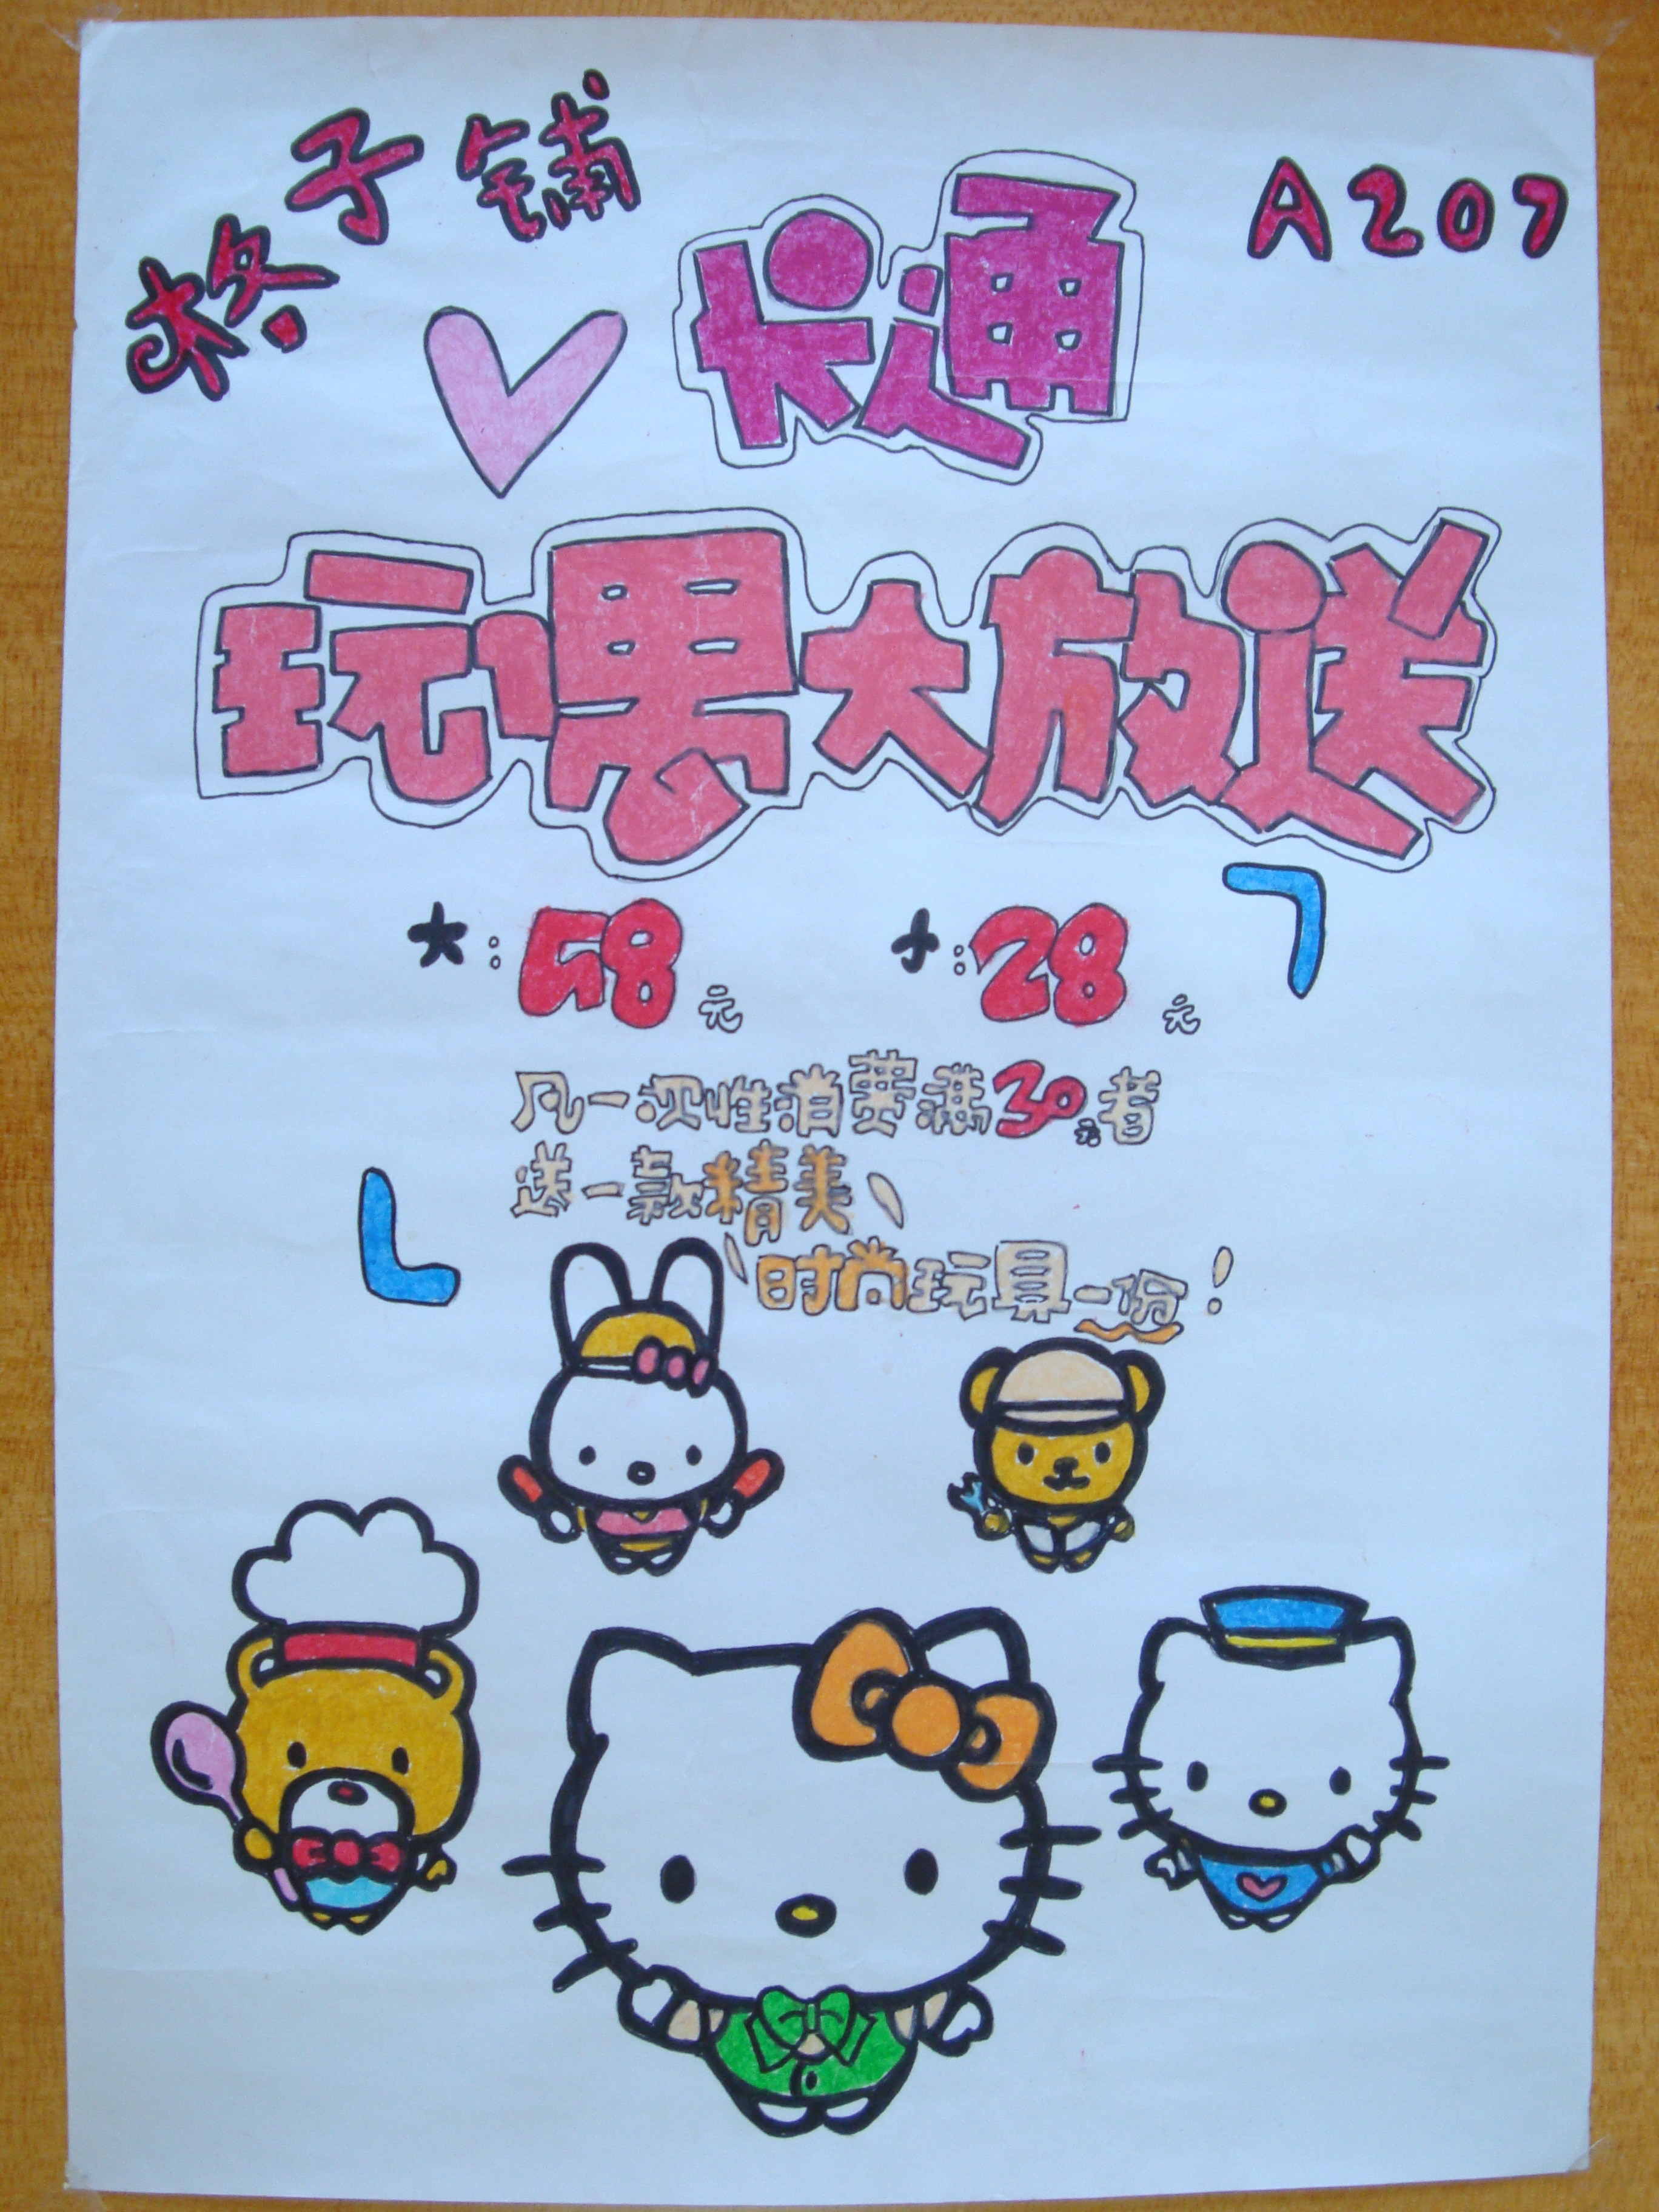 格子铺
A207
卡通
玩偶大放送
大:58元 小:28元
凡一次性消费满30元者
送一款精美、
时尚玩具一份!